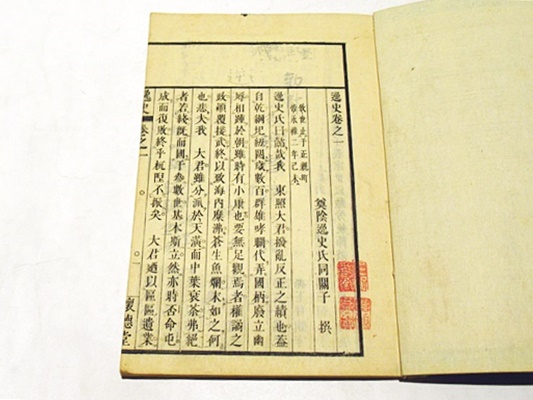 逸史卷之一
奠陰逸史氏同關子 撰
逸史氏曰懿哉我 東照大君撥亂反正之績也蓋
自乾綱圯紐閲歲數百群雄哮闞代弄國柄廢立幽
辱相踵於朝雖時有小康也要無足觀焉者權譎之
致顛覆接武終以致海內糜沸蒼生魚爛末如之何
也悲夫我 大君雖分派於天潢而中葉衰茶弗絕
者若綫既而國于參數世基本斯立然亦時否命屯
成而復敗終乎杌隉不振矣 大君迺以區區遺業
逸史 卷之一
一
懷德堂